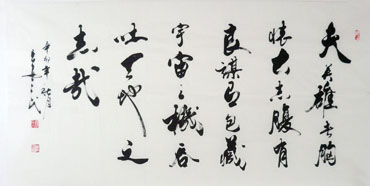 夫英雄者胸
怀大志腹有
良谋有包藏
宇宙之机吞
吐天地之
志哉